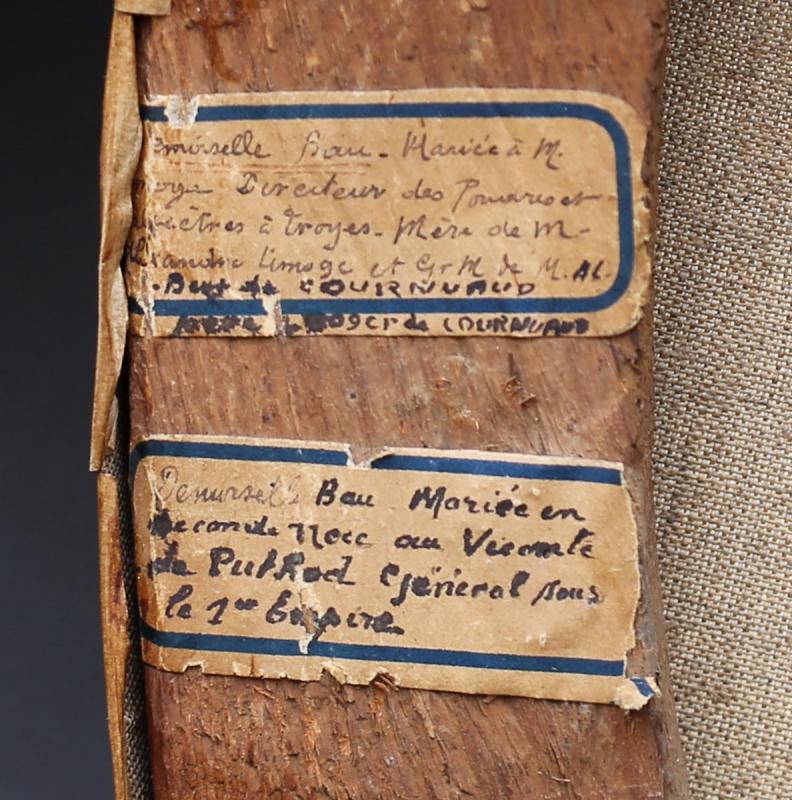 emoiselle Bau - Mariée à M.
moge Directeur des Poudres et
lpêtres à Troyes. Mère de M-
lexandre Limoge et Gr M de M. Al-
de COURNUAUD
Roger de COURNUAUD
Demoiselle Bau Mariée en
seconde noce au Vicomte
de Puthod Général sous
le 1er Empire